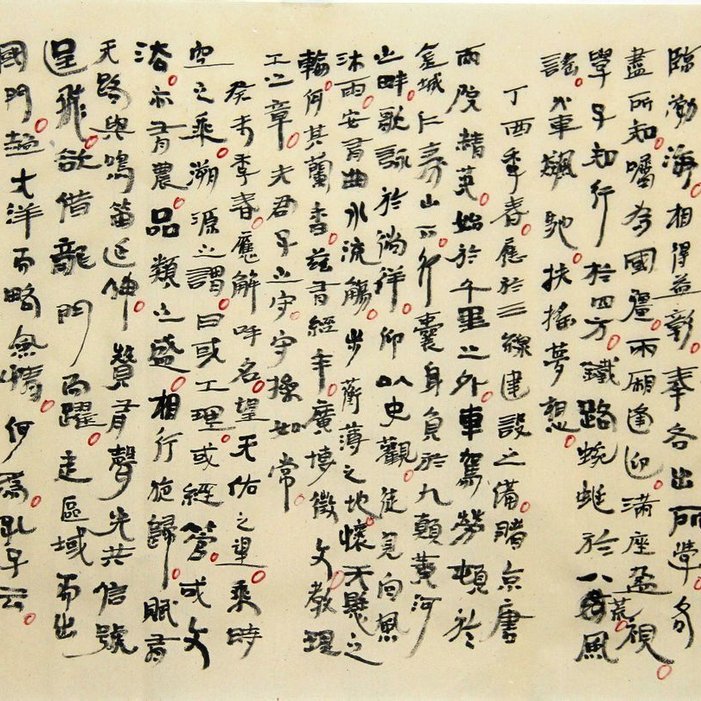 臨渤海。相得益彰。奉各出所學。各
盡所知。囑為國疆。兩廂逢迎。滿座盈視
學子知行於四方。鐵路蜿蜒於八荒風
謠。火車飆馳扶搖夢想。
丁酉季春。應於三線建設之備。睹京唐
兩院精英。始於千里之外。車駕勞頓於
金城仁壽山。行囊身負於九顛黃河
之畔。歌詠於徜徉。仰以史觀。徒見向風
沐雨。安有曲水流觴。步蘅薄之地。懷天懸之
輪。何其蘭香。茲有經年。廣博徵文教理
工之章。夫君子之守。守操如常。
癸未季春。應解呼名。望天佑之里。乘時
空之乘。溯源之謂。曰或工理。或經管。或文
法。亦有農品類之盛。相行旋歸。賦有
天路與鳴笛延伸。贊有聲先共信號
呈飛。欲借龍門而躍。走區域而出
國門。越大洋而略風情。何為孔子云。